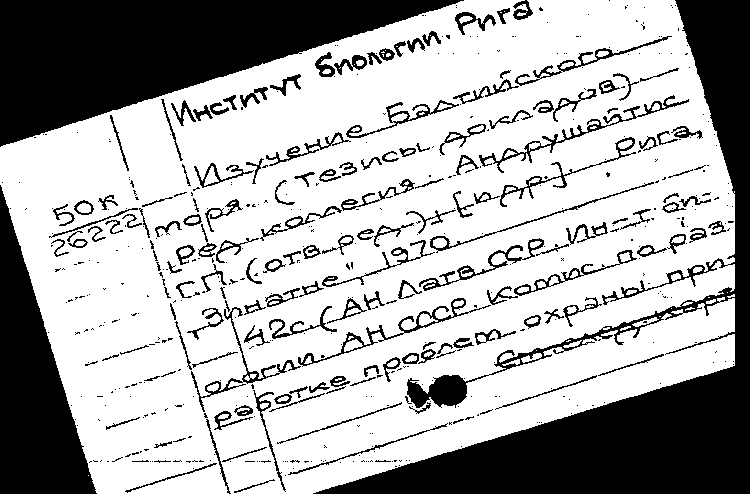 Институт биологии. Рига.
Изучение Балтийского
моря. (Тезисы докладов).
50к
26222
[Ред. коллегия: Андрушайтис
Г.П. (отв. ред.) и [др.]. Рига,
"Зинатне", 1970.
42с. (АН Латв.ССР. Ин-т би-
ологии. АН СССР. Комис. по раз-
работке проблем охраны при-
См. след. карт